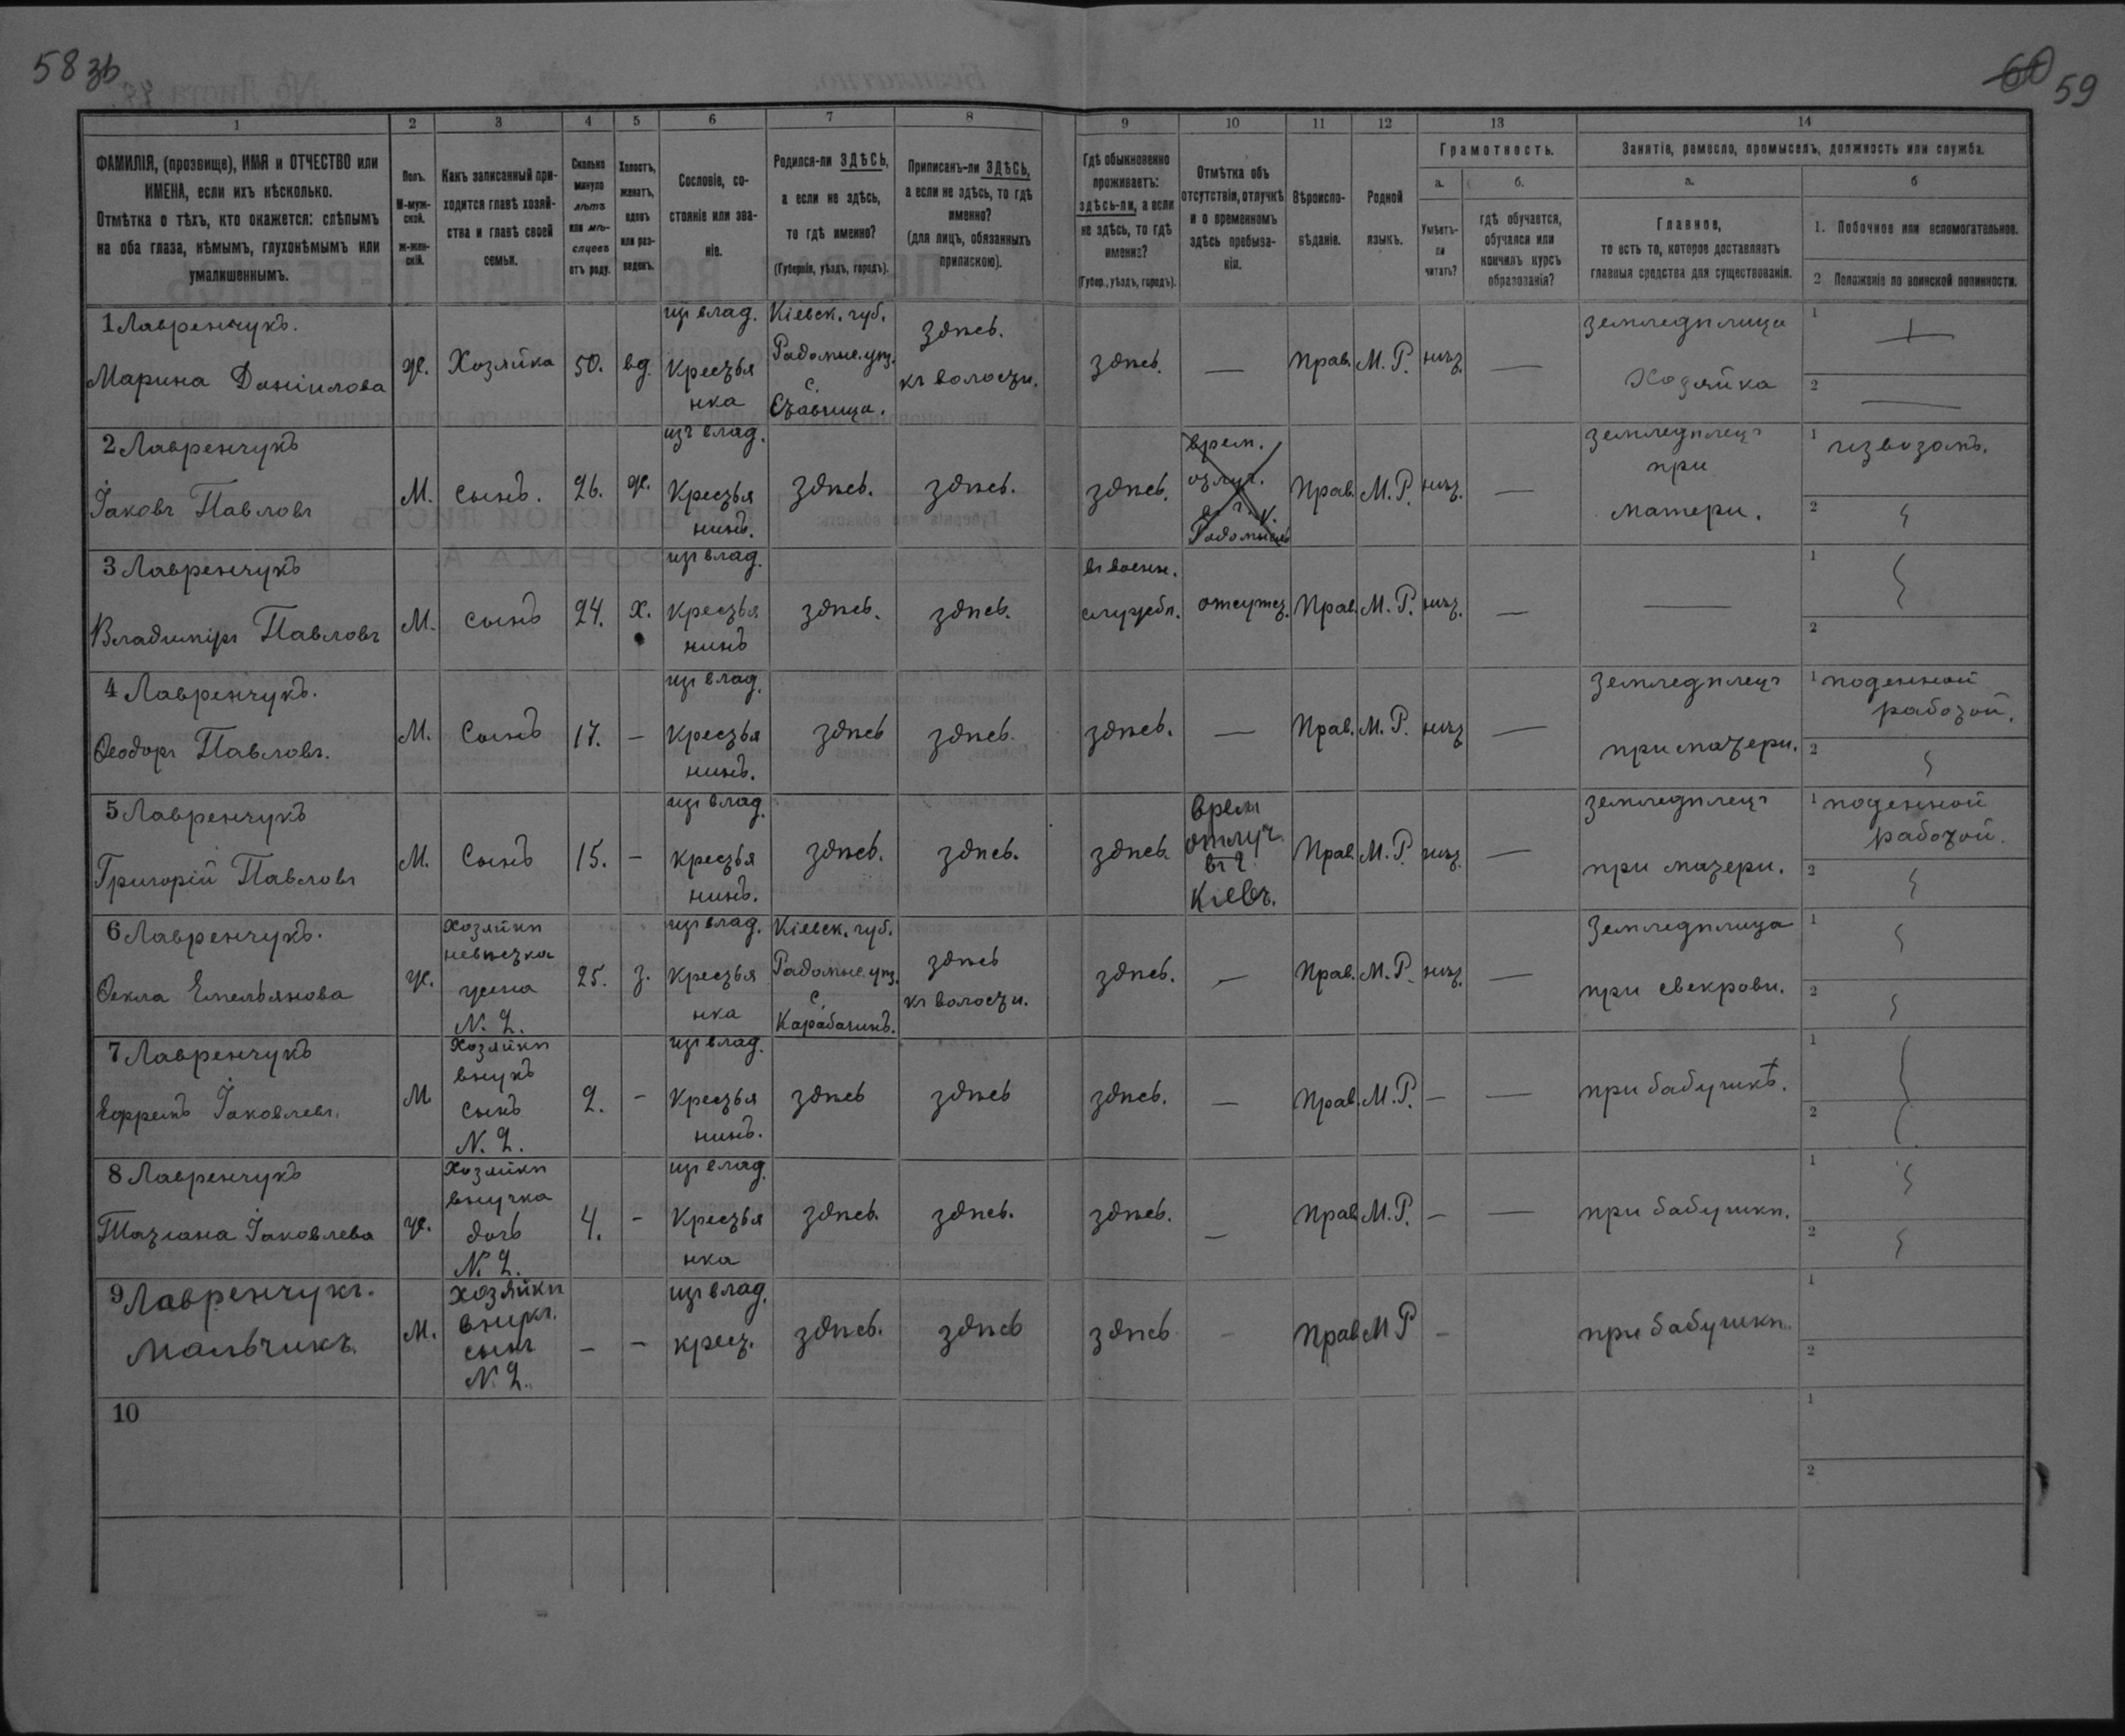 58 зв
60 59
1
2
3
4
5
6
7
8
9
10
11
12
13
14
ФАМИЛІЯ, (прозвище), ИМЯ и ОТЧЕСТВО или
ИМЕНА, если ихъ нѣсколько.
Отмѣтка о тѣхъ, кто окажется: слѣпымъ
на оба глаза, нѣмымъ, глухонѣмымъ или
умалишеннымъ.
Полъ.
М-муж-
ской.
ж-жен-
скій.
Какъ записанный при-
ходится главѣ хозяй-
ства и главѣ своей
семьи.
Сколько
минуло
лѣтъ
или мѣ-
сяцевъ
отъ роду.
Холостъ,
женатъ,
вдовъ
или раз-
веденъ.
Сословіе, со-
стояніе или зва-
ніе.
Родился-ли ЗДѢСЬ,
а если не здѣсь,
то гдѣ именно?
(Губернія, уѣздъ, городъ).
Приписанъ-ли ЗДѢСЬ,
а если не здѣсь, то гдѣ
именно?
(для лицъ, обязанныхъ
припискою).
Гдѣ обыкновенно
проживаетъ:
здѣсь-ли, а если
не здѣсь, то гдѣ
именно?
(Губер., уѣздъ, городъ).
Отмѣтка объ
отсутствіи, отлучкѣ
и о временномъ
здѣсь пребыва-
ніи.
Вѣроиспо-
вѣданіе.
Родной
языкъ.
Грамотность.
а.
б.
Умѣетъ-
ли
читать?
гдѣ обучается,
обучался или
кончилъ курсъ
образованія?
Занятіе, ремесло, промыселъ, должность или служба.
а.
б
Главное,
то есть то, которое доставляетъ
главныя средства для существованія.
1. Побочное или вспомогательное.
2 Положеніе по воинской повинности.
1 Лавренчукъ.
Марина Даніилова
ж.
Хозяйка
50.
вд.
изъ влад.
Крестья
нка
Кіевск. губ.
Радомыс. уѣз.
с.
Ставища.
здѣсь.
къ волости.
здѣсь.
—
Прав.
М. Р.
нѣт.
—
земледѣлица
Хозяйка
1
2
2 Лавренчукъ
Іаковъ Павловъ
М.
сынъ.
26.
ж.
изъ влад.
Крестья
нинъ.
здѣсь.
здѣсь.
здѣсь.
врем.
отлуч.
Радомысль
Прав.
М. Р.
нѣт.
—
земледѣлецъ
при
матери.
1 извозомъ.
2
3 Лавренчукъ
Владиміръ Павловъ
М.
сынъ
24.
х.
изъ влад.
Крестья
нинъ
здѣсь.
здѣсь.
въ военн.
службѣ.
отсутст.
Прав.
М. Р.
нѣт.
—
—
1
2
4 Лавренчукъ.
Ѳеодоръ Павловъ.
М.
Сынъ
17.
—
изъ влад.
Крестья
нинъ.
здѣсь
здѣсь.
здѣсь.
—
Прав.
М. Р.
нѣт.
—
земледѣлецъ
при матери.
1 поденной
работой.
2
5 Лавренчукъ
Григорій Павловъ
М.
Сынъ
15.
—
изъ влад.
крестья
нинъ.
здѣсь.
здѣсь.
здѣсь.
врем
отлуч.
въ г
Кіевъ.
Прав.
М. Р.
нѣт.
—
земледѣлецъ
при матери.
1 поденной
работой.
2
6 Лавренчукъ.
Ѳекла Емельянова
ж.
Хозяйки
невѣстка
жена
N. 2.
25.
з.
изъ влад.
Крестья
нка
Кіевск. губ.
Радомыс. уѣз.
с.
Карабачинъ.
здѣсь
къ волости.
здѣсь.
—
Прав.
М. Р.
нѣт.
—
Земледѣлица
при свекрови.
1
2
7 Лавренчукъ
Ефремъ Іаковлевъ.
М
Хозяйки
внукъ
сынъ
N. 2.
2.
-
изъ влад.
Крестья
нинъ.
здѣсь
здѣсь
здѣсь.
—
Прав.
М. Р.
—
—
при бабушкѣ.
1
2
8 Лавренчукъ
Татіана Іаковлева
ж.
Хозяйки
внучка
дочь
N. 2.
4.
-
изъ влад.
Крестья
нка
здѣсь.
здѣсь.
здѣсь.
—
Прав.
М. Р.
—
—
при бабушкѣ.
1
2
9 Лавренчукъ.
Мальчикъ.
М.
хозяйки
внукъ.
сынъ
N. 2.
—
—
изъ влад.
крест.
здѣсь.
здѣсь
здѣсь
-
Прав
М Р
-
при бабушкѣ.
1
2
10
1
2